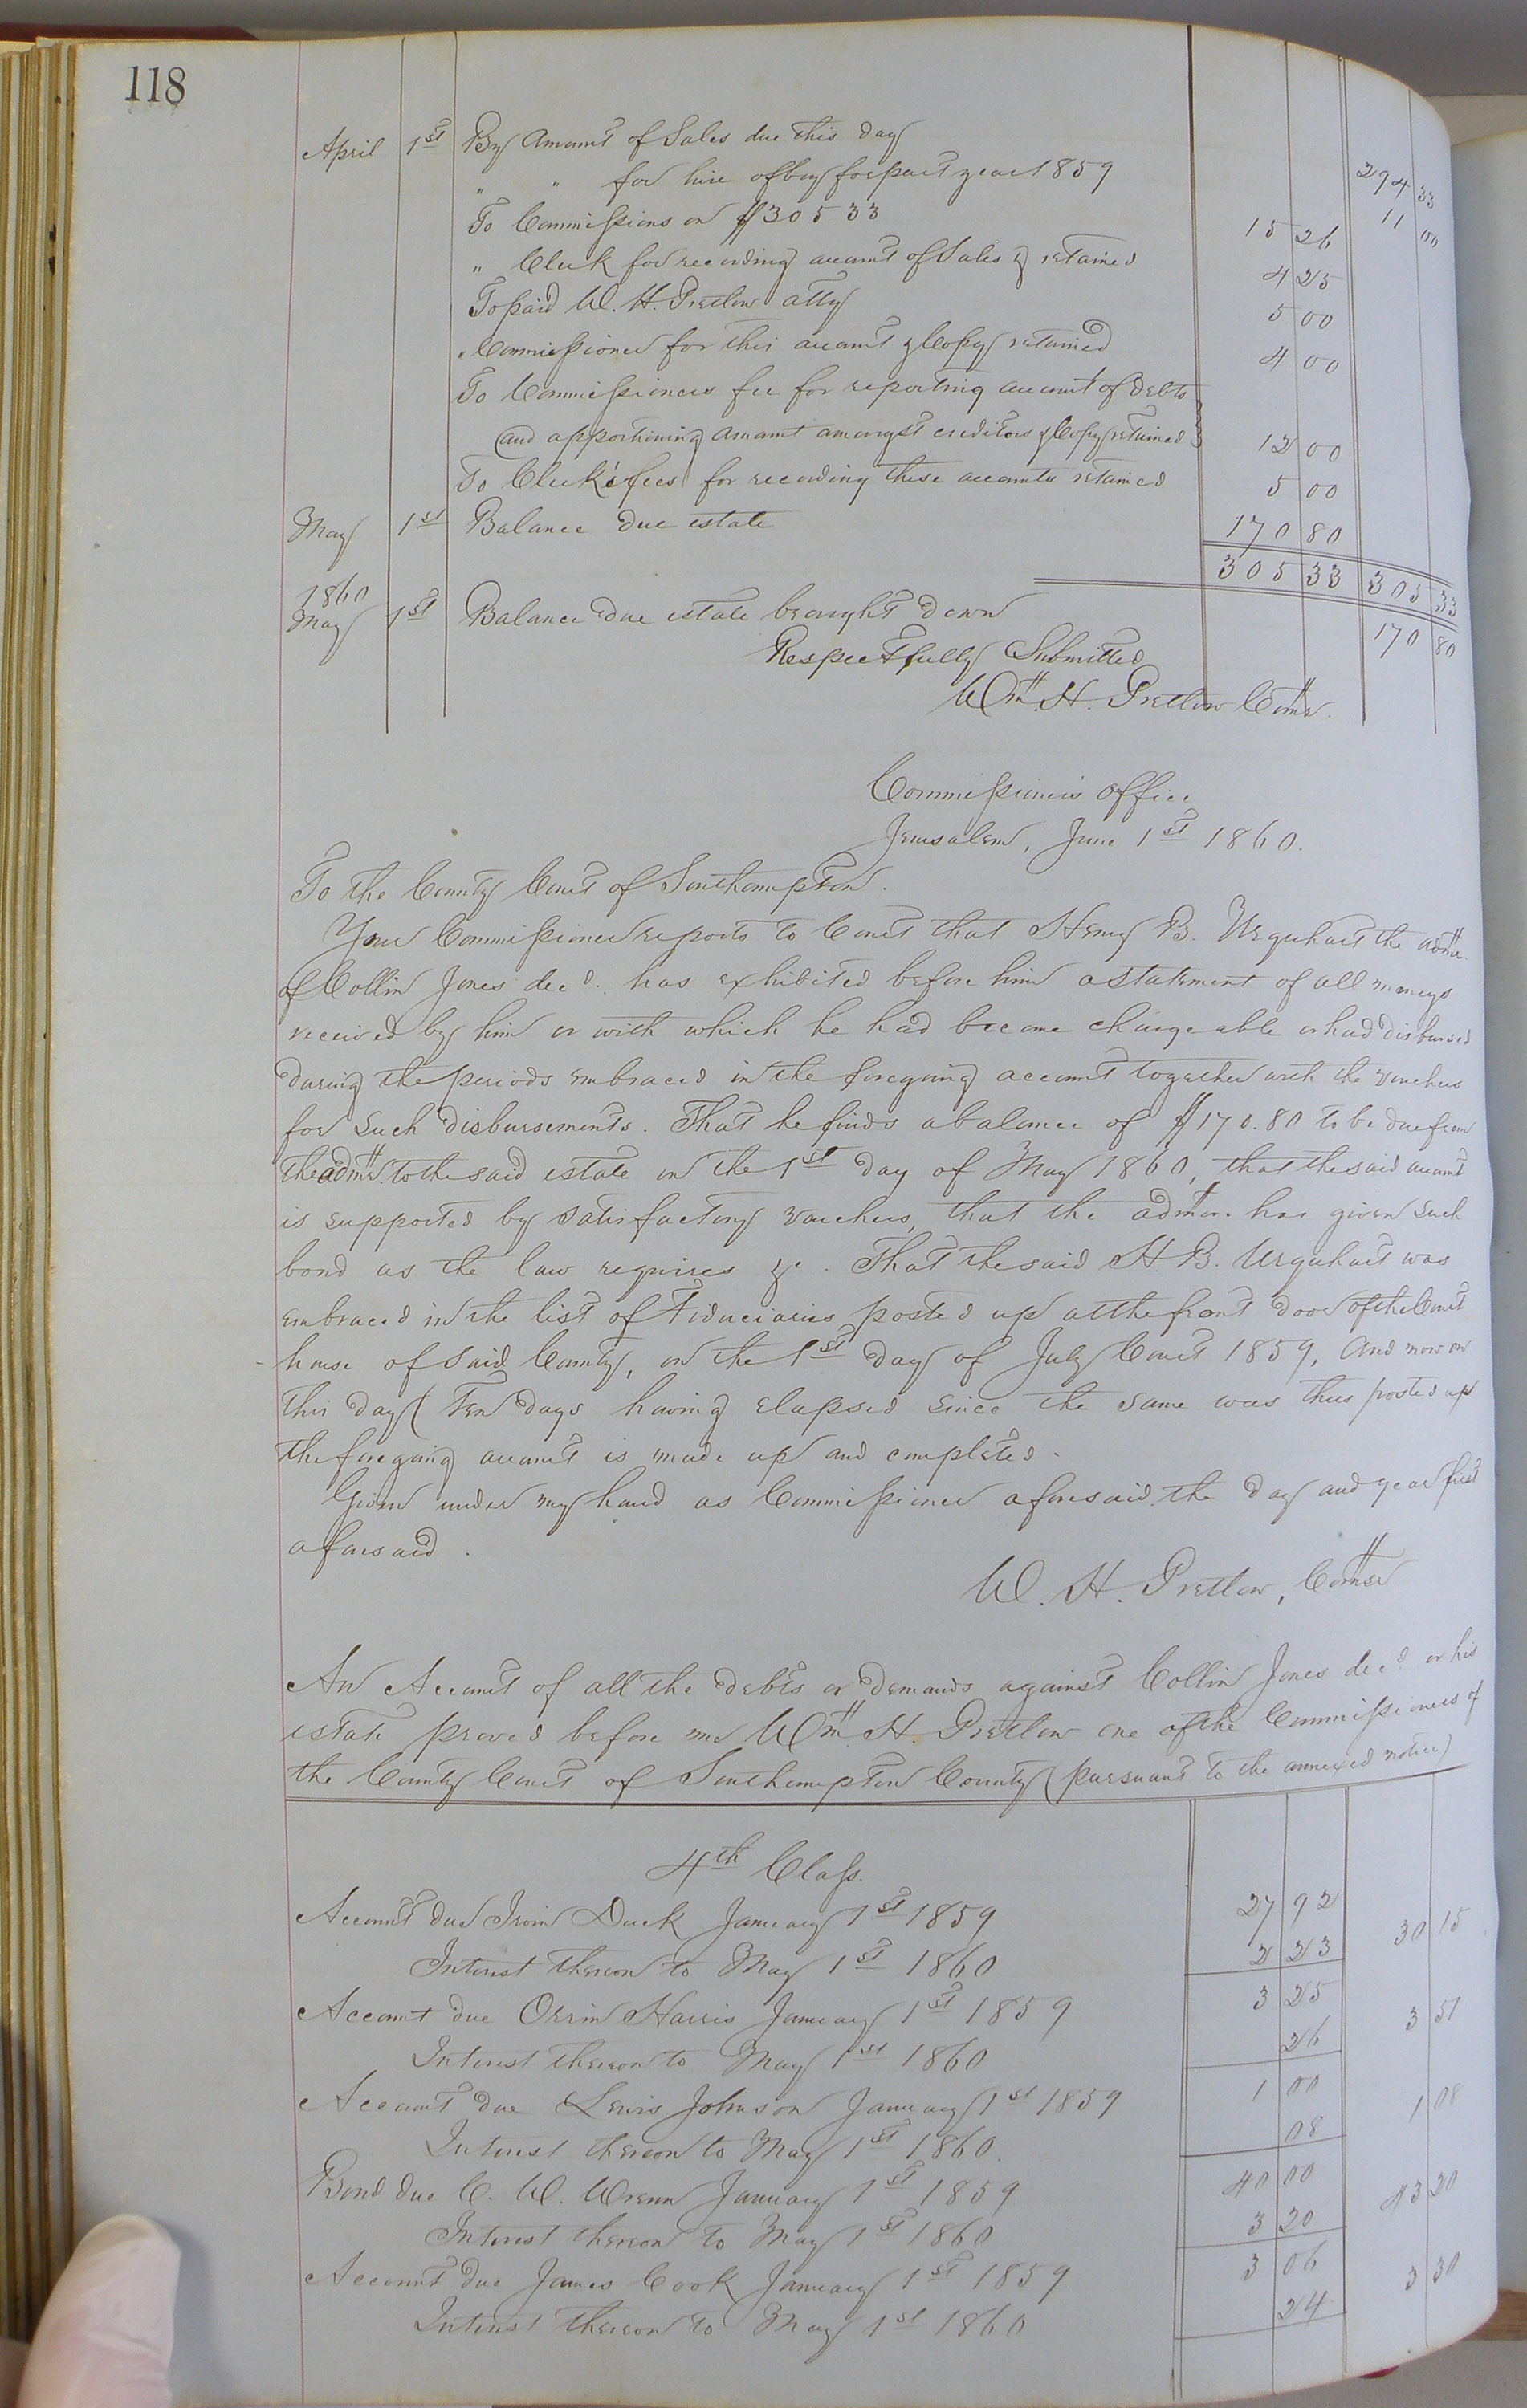 118
April 1st By Amount of Sales due this day 294 33
" " for hire of boy for part year 1859 11 00
To Commissions on $305 33 15 26
" Clerk for recording account of Sales & retained 4 25
To paid W. H. Pretlow atty 5 00
" Commissioner for this account & Copy retained 4 00
To Commissioners fee for reporting account of debts
and apportioning amount amongst creditors & Copy retained 12 00
To Clerk's fees for recording these accounts retained 5 00
May 1st Balance due estate 170 80
305 33 305 33
1860
May 1st Balance due estate brought down 170 80
Respectfully Submitted
Wm. H. Pretlow Comr.
Commissioner's Office
Jerusalem, June 1st 1860.
To the County Court of Southampton.
Your Commissioner reports to Court that Henry B. Urquhart the admr.
of Collin Jones decd. has exhibited before him a statement of all moneys
received by him or with which he had become chargeable or had disbursed
during the periods embraced in the foregoing account together with the vouchers
for such disbursements. That he finds a balance of $170.80 to be due from
the admr. to the said estate on the 1st day of May 1860, that the said account
is supported by satisfactory vouchers, that the admor. has given such
bond as the law requires &c. That the said H. B. Urquhart was
embraced in the list of Fiduciaries posted up at the front door of the Court
house of said County, on the 1st day of July Court 1859, and now on
this day (Ten days having elapsed since the same was thus posted up
the foregoing account is made up and completed.
Given under my hand as Commissioner aforesaid the day and year first
aforesaid.
W. H. Pretlow, Comsr
An Account of all the debts or demands against Collin Jones decd or his
estate proved before me Wm H. Pretlow one of the Commissioners of
the County Court of Southampton County (pursuant to the annexed notice)
4th Class.
Account due Irvin Duck January 1st 1859 27 92
Interest thereon to May 1st 1860 2 23 30 15
Account due Orrin Harris January 1st 1859 3 25
Interest thereon to May 1st 1860 26 3 51
Account due Lewis Johnson January 1st 1859 1 00
Interest thereon to May 1st 1860. 08 1 08
Bond due C. W. Wrenn January 1st 1859 40 00
Interest thereon to May 1st 1860 3 20 43 20
Account due James Cook January 1st 1859 3 06
Interest thereon to May 1st 1860 24 3 30